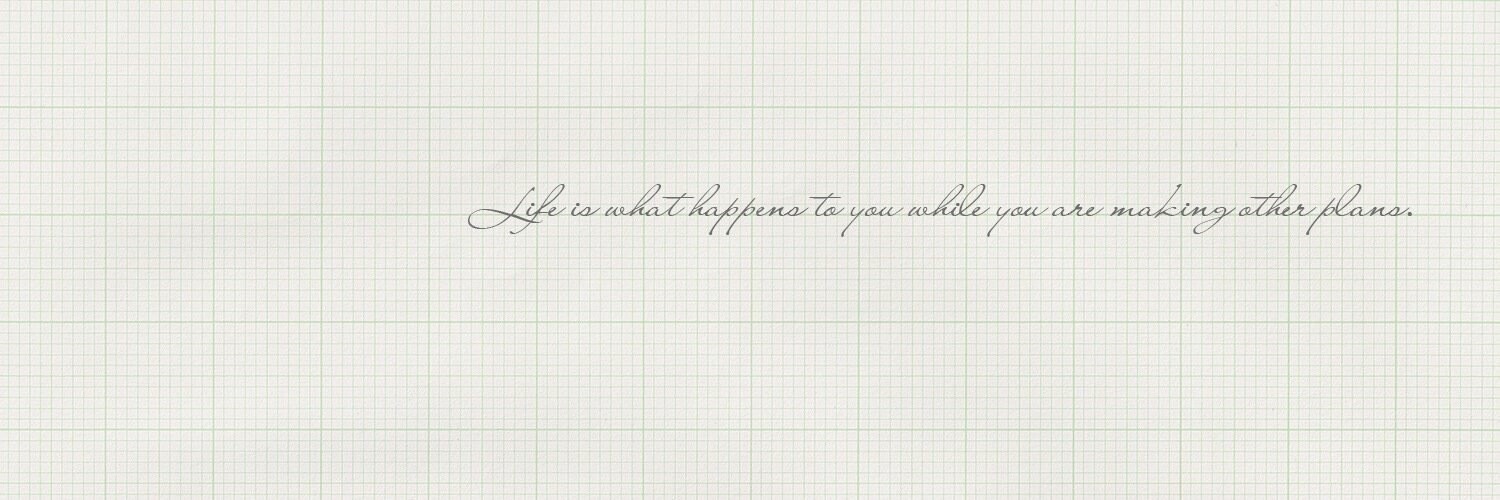 Life is what happens to you while you are making other plans.